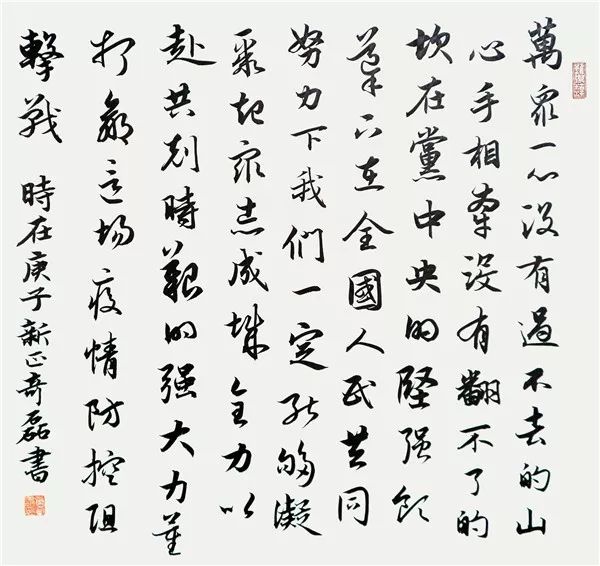 萬衆一心没有過不去的山
心手相牽没有翻不了的
坎在黨中央的堅强領
導下在全國人民共同
努力下我們一定能够凝
聚起衆志成城全力以
赴共剋時艱的强大力量
打贏這場疫情防控阻
擊戰 時在庚子新正奇磊書